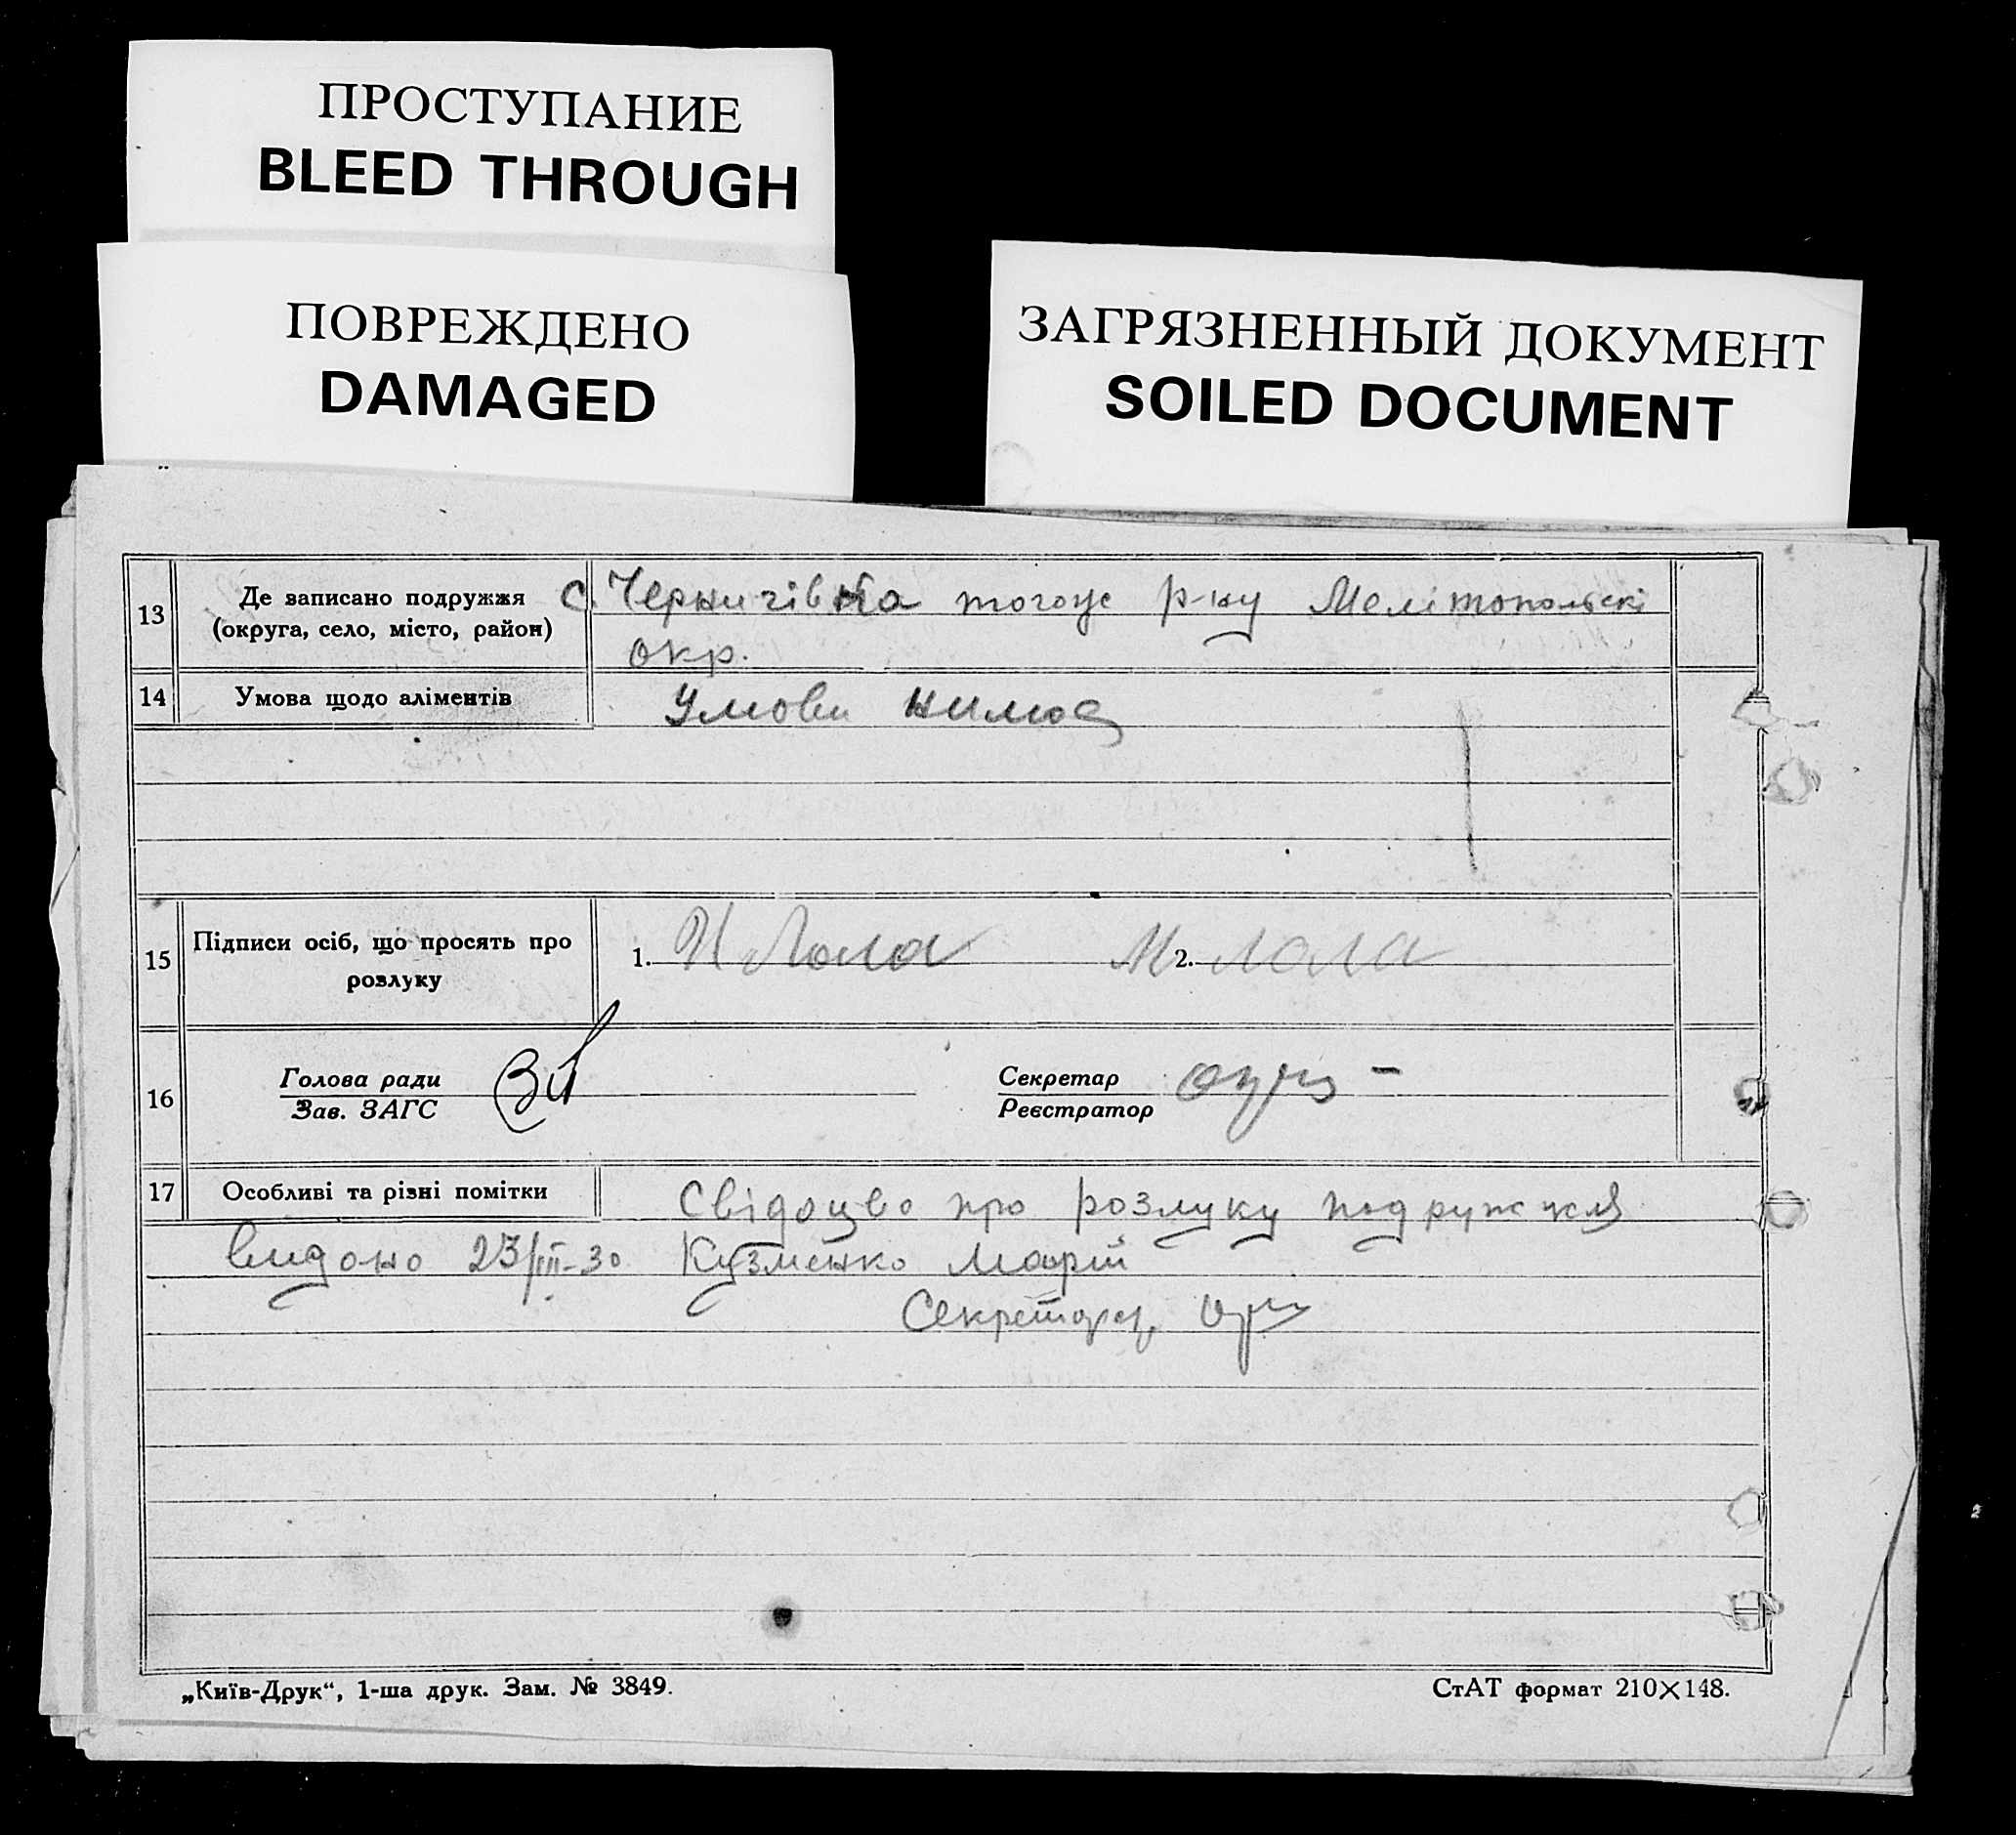 ПРОСТУПАНИЕ
BLEED THROUGH
ПОВРЕЖДЕНО
DAMAGED
ЗАГРЯЗНЕННЫЙ ДОКУМЕНТ
SOILED DOCUMENT
13 Де записано подружжя с. Чернигівка тогоже р-ну Мелітопольскі
(округа, село, місто, район) окр.
14 Умова щодо аліментів Умови
15 Підписи осіб, що просять про 1. И Лола М 2. Лола
розлуку
16 Голова ради Секретар
Зав. ЗАГС Реєстратор
17 Особливі та різні помітки Свідоцво про розлуку подружжя
видоно 23/III-30 Кузменко Марїі
Секретарь
„Київ-Друк“, 1-ша друк. Зам. № 3849. СтАТ формат 210×148.